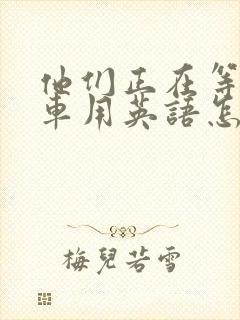 他们正在等
車用英語怎
梅兒若雪